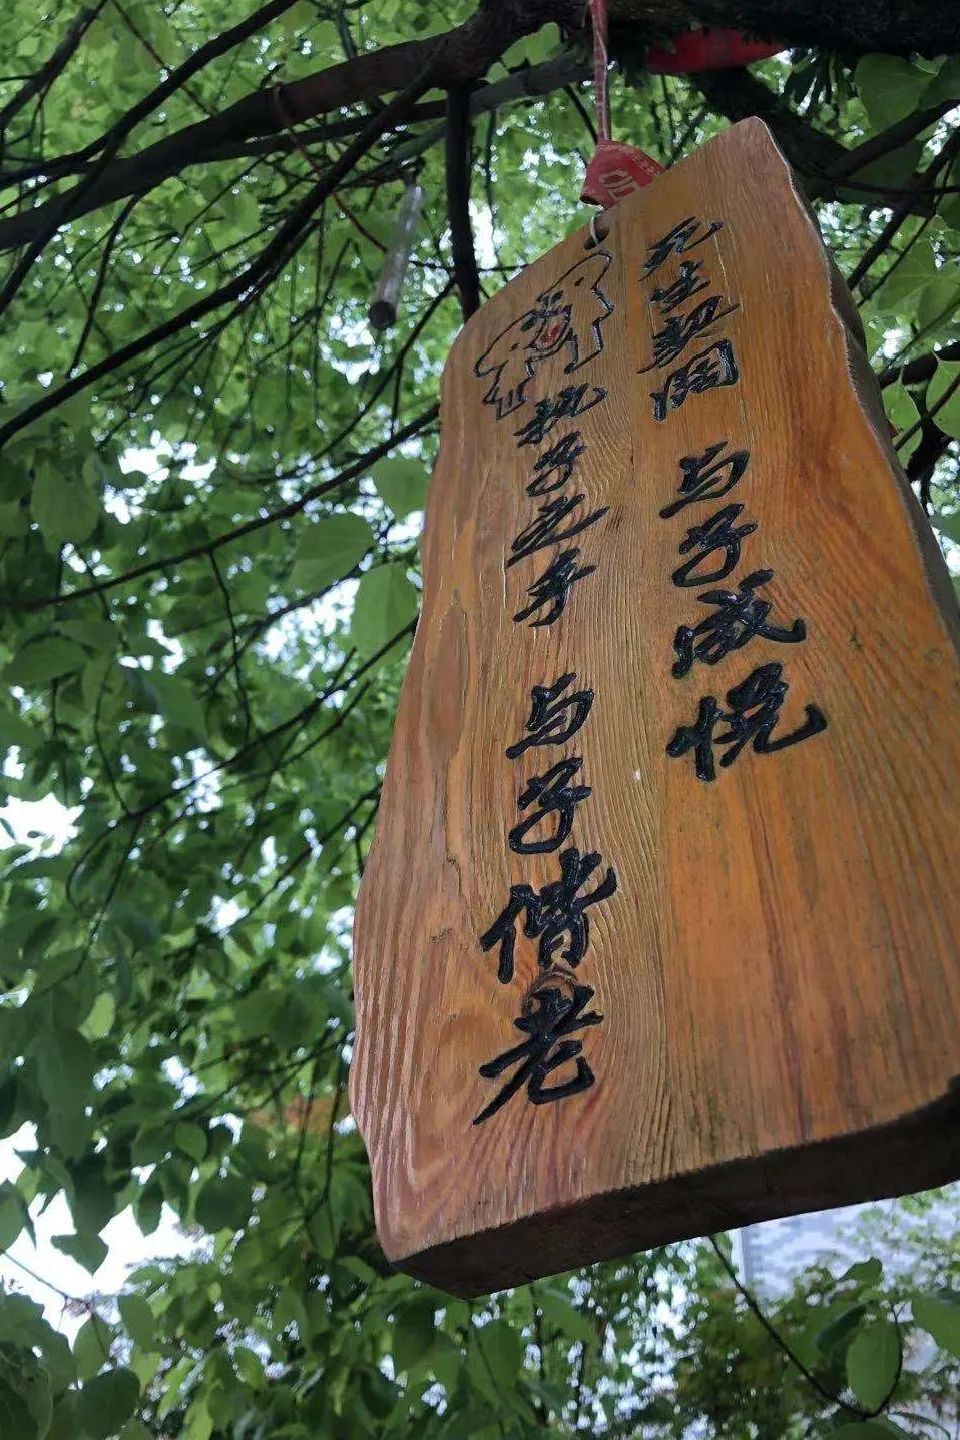 死生契阔 与子成悦
执子之手 与子偕老